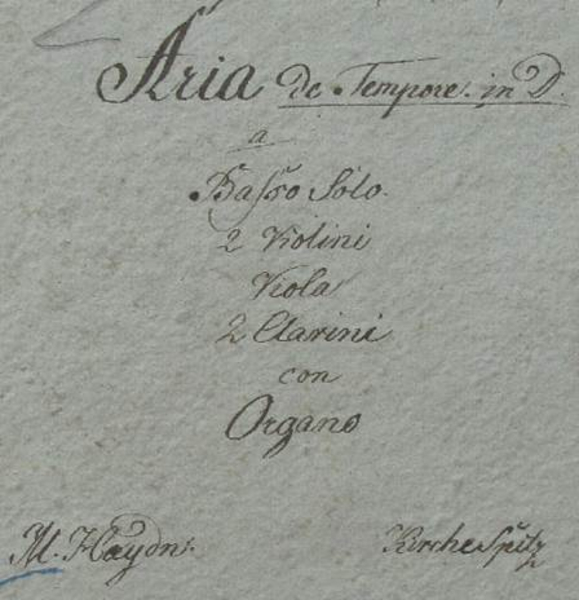 Aria de Tempore. in D.
a
Basso Solo.
2 Violini
Viola
2 Clarini
con
Organo
M. Haydn.
Kirche Spitz